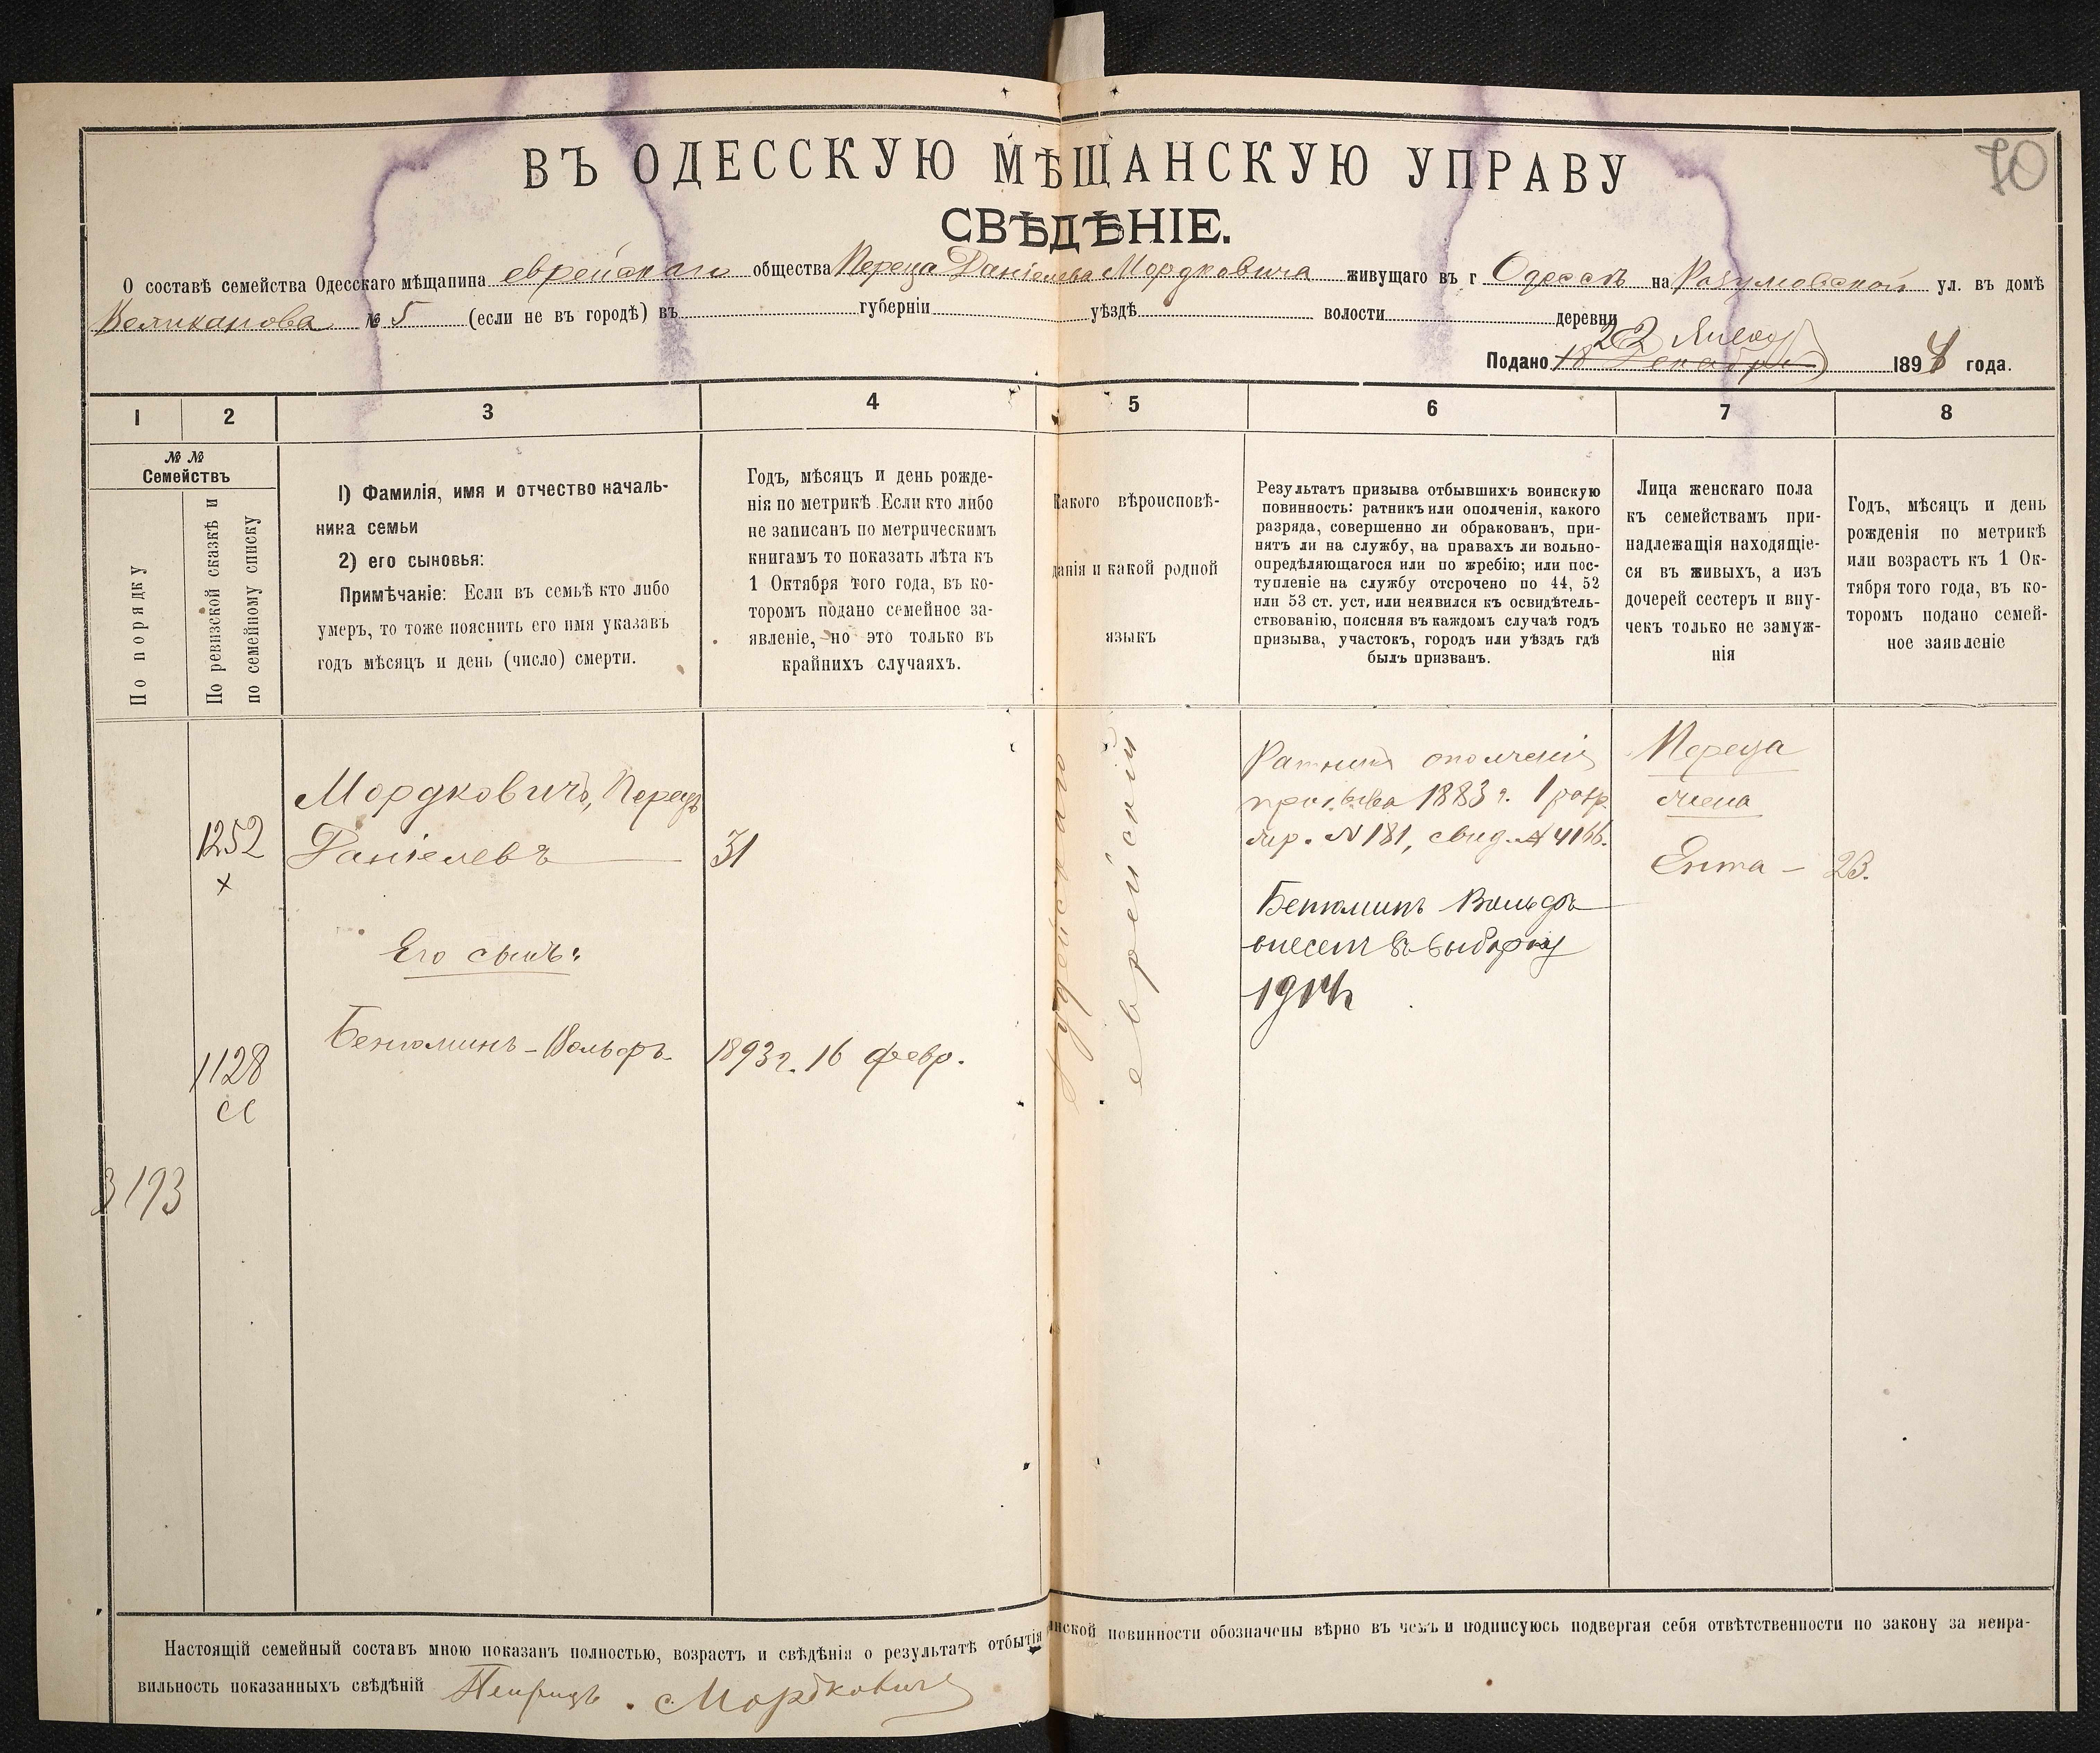 70
ВЪ ОДЕССКУЮ МѢЩАНСКУЮ УПРАВУ
СВѢДѢНІЕ.
О составѣ семейства Одесскаго мѣщанина еврейскаго общества Переца Даніелева Мордковича живущаго въ г Одессѣ на Разумовской ул. въ домѣ
Великанова № 5 (если не въ городѣ) въ губерніи уѣздѣ волости деревни
22 Января
Подано 18 Декабря 1894 года.
1 2 3 4 5 6 7 8
№ №
Семействъ
По порядку
По ревизской сказкѣ и
по семейному списку
1) Фамилія, имя и отчество началь-
ника семьи
2) его сыновья:
Примѣчаніе: Если въ семьѣ кто либо
умеръ, то тоже пояснить его имя указавъ
годъ мѣсяцъ и день (число) смерти.
Годъ, мѣсяцъ и день рожде-
нія по метрикѣ. Если кто либо
не записанъ по метрическимъ
книгамъ то показать лѣта къ
1 Октября того года, въ ко-
торомъ подано семейное за-
явленіе, но это только въ
крайнихъ случаяхъ.
Какого вѣроисповѣ-
данія и какой родной
языкъ
Результатъ призыва отбывшихъ воинскую
повинность: ратникъ или ополченія, какого
разряда, совершенно ли обракованъ, при-
нятъ ли на службу, на правахъ ли вольно-
опредѣляющагося или по жребію; или пос-
тупленіе на службу отсрочено по 44, 52
или 53 ст. уст, или неявился къ освидѣтель-
ствованію, поясняя въ каждомъ случаѣ годъ
призыва, участокъ, городъ или уѣздъ гдѣ
былъ призванъ.
Лица женскаго пола
къ семействамъ при-
надлежащія находящіе-
ся въ живыхъ, а изъ
дочерей сестеръ и вну-
чекъ только не замуж-
нія
Годъ, мѣсяцъ и день
рожденія по метрикѣ
или возрастъ къ 1 Ок-
тября того года, въ ко-
торомъ подано семей-
ное заявленіе
1252
х
Мордковичъ, Перецъ
Даніелевъ
31
Его сынъ:
1128
Бенюминъ-Вольфъ
1893 г. 16 февр.
3193
еврейскій
Ратникъ ополченія
призыва 1883 г. 1 разр.
жр. N 181, свид. № 4166.
Бенюминъ Вольфъ
внесенъ въ выборку
1914
Переца
жена
Ента – 23.
Настоящій семейный составъ мною показанъ полностью, возрастъ и свѣдѣнія о результатѣ отбытія инской повинности обозначены вѣрно въ чемъ и подписуюсь подвергая себя отвѣтственности по закону за непра-
вильность показанныхъ свѣдѣній Мордковичъ